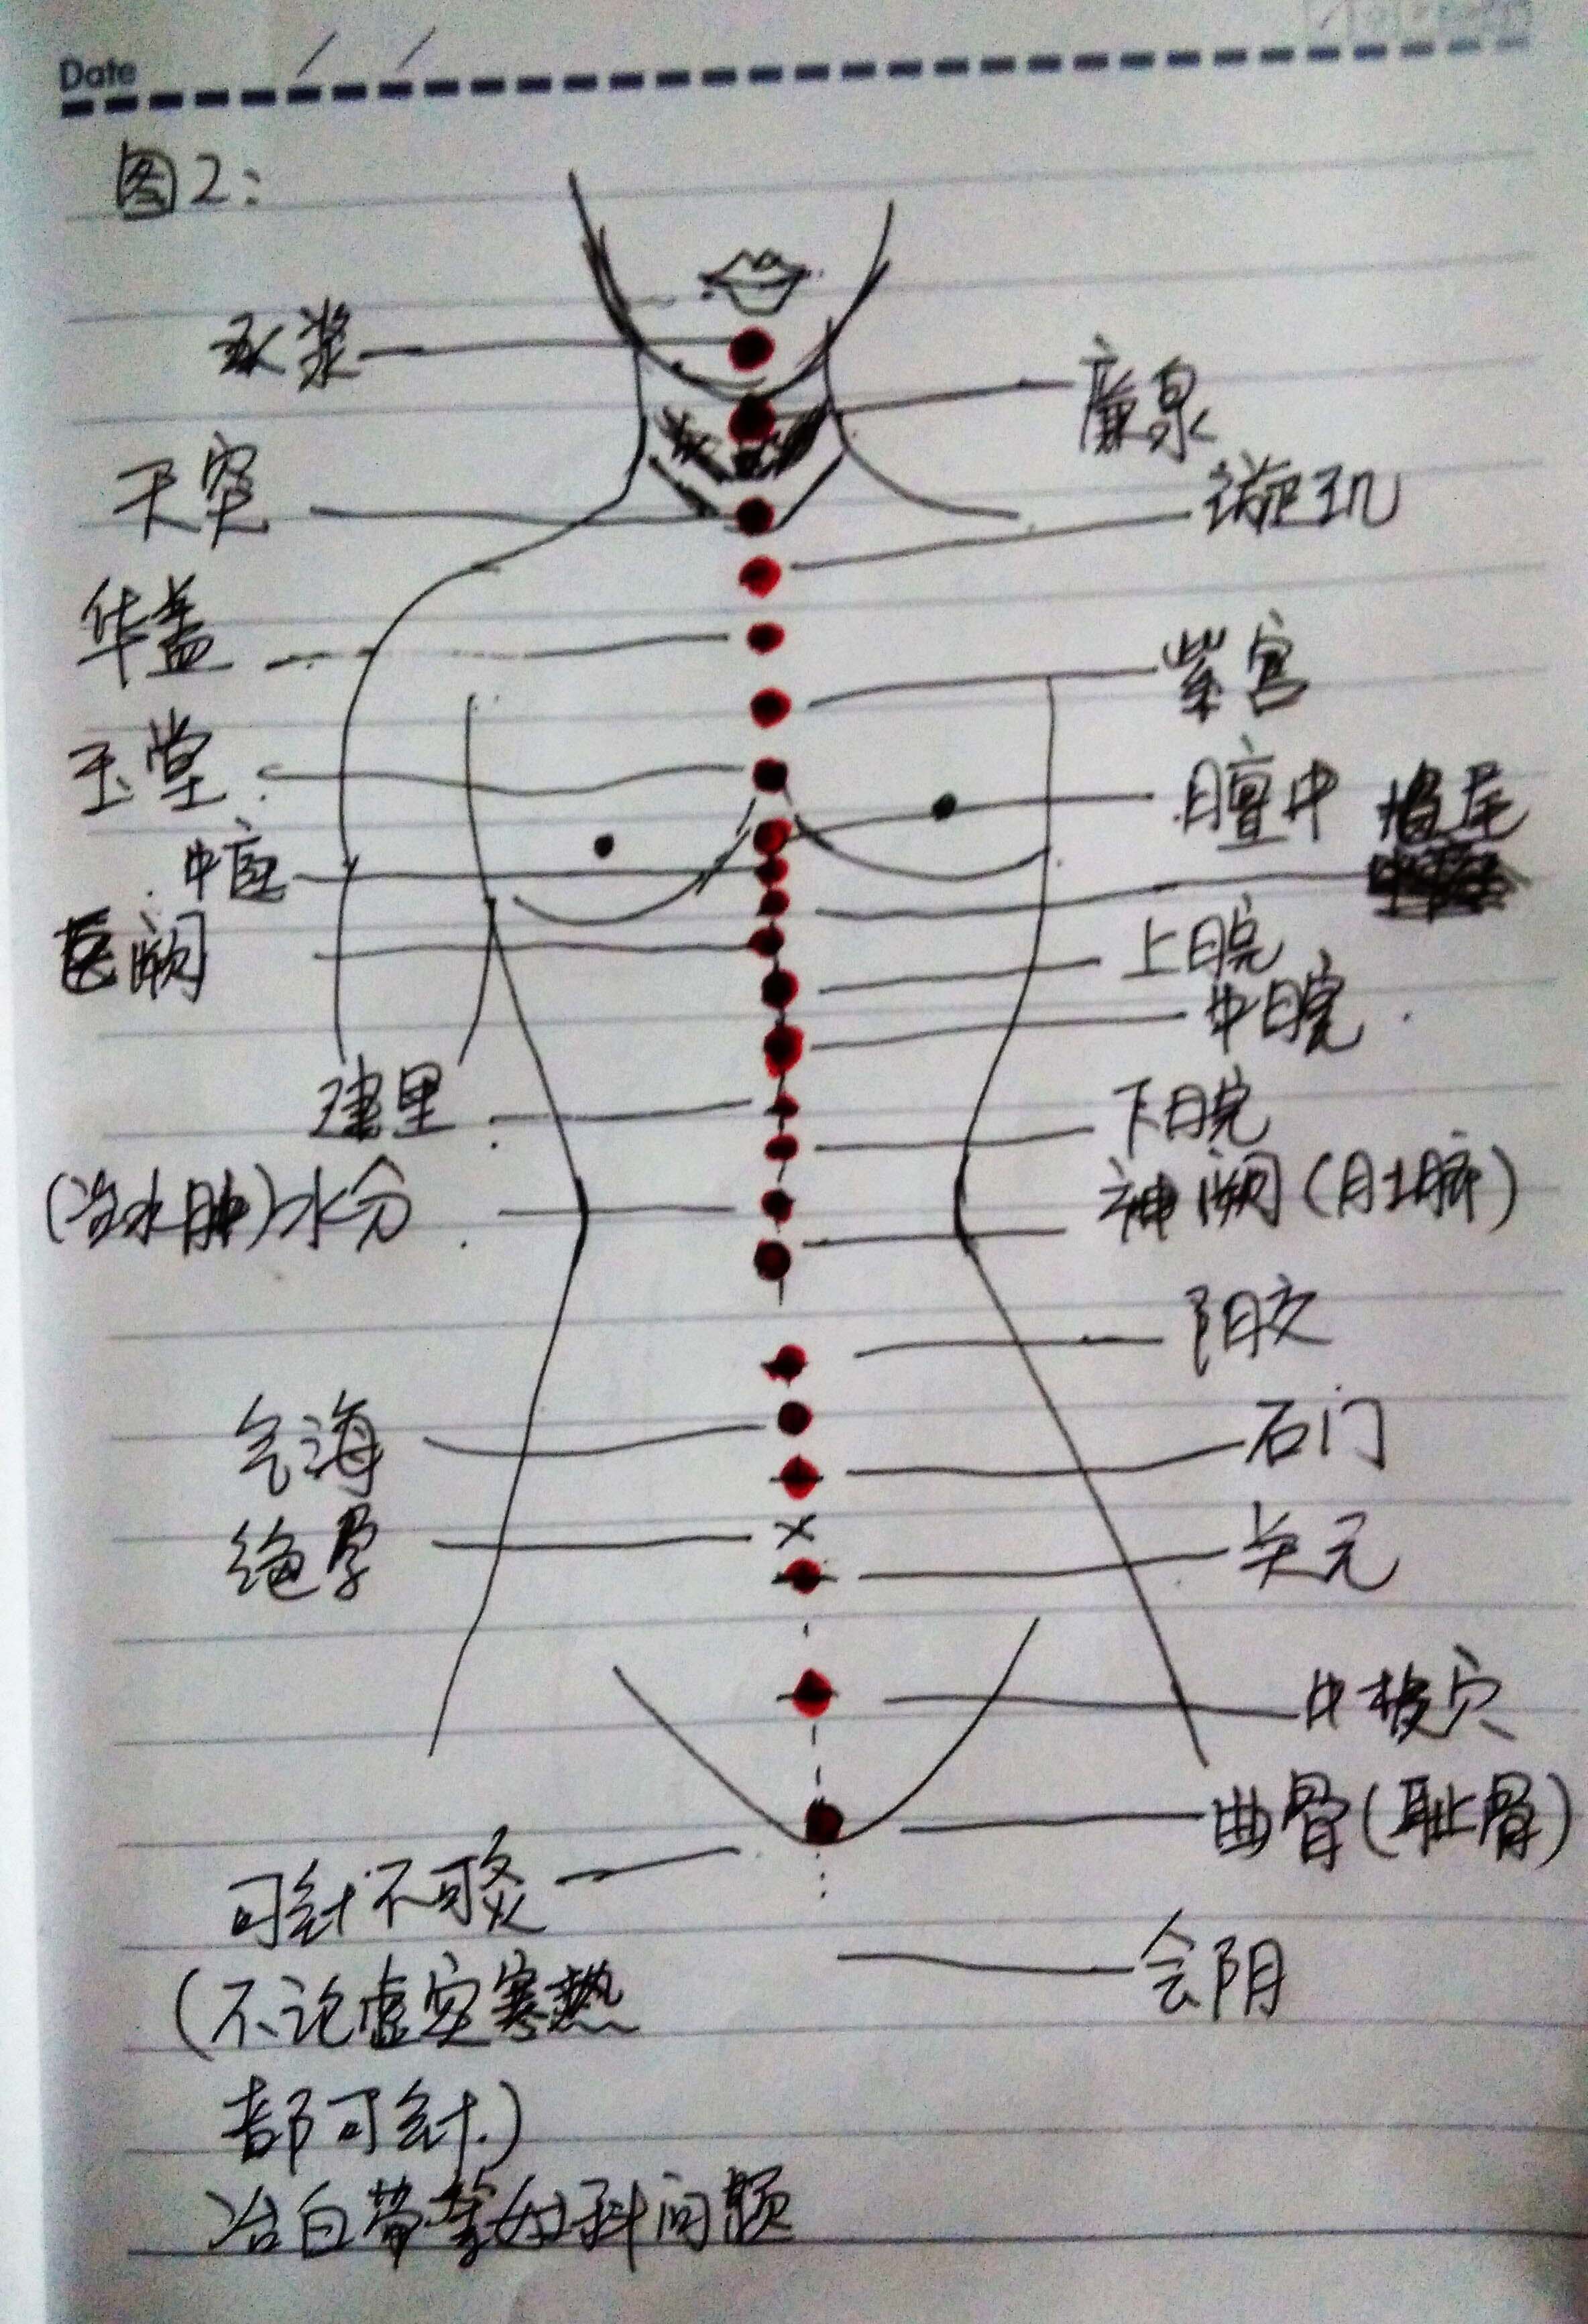 Date
图2:
承浆
廉泉
天突
璇玑
华盖
紫宫
玉堂
膻中 鸠尾
中庭
巨阙
上脘
中脘
建里
下脘
(治水肿)水分
神阙(肚脐)
阴交
气海
石门
绝孕
关元
中极穴
曲骨(耻骨)
可针不可灸
会阴
(不论虚实寒热
都可针.)
治白带等妇科问题